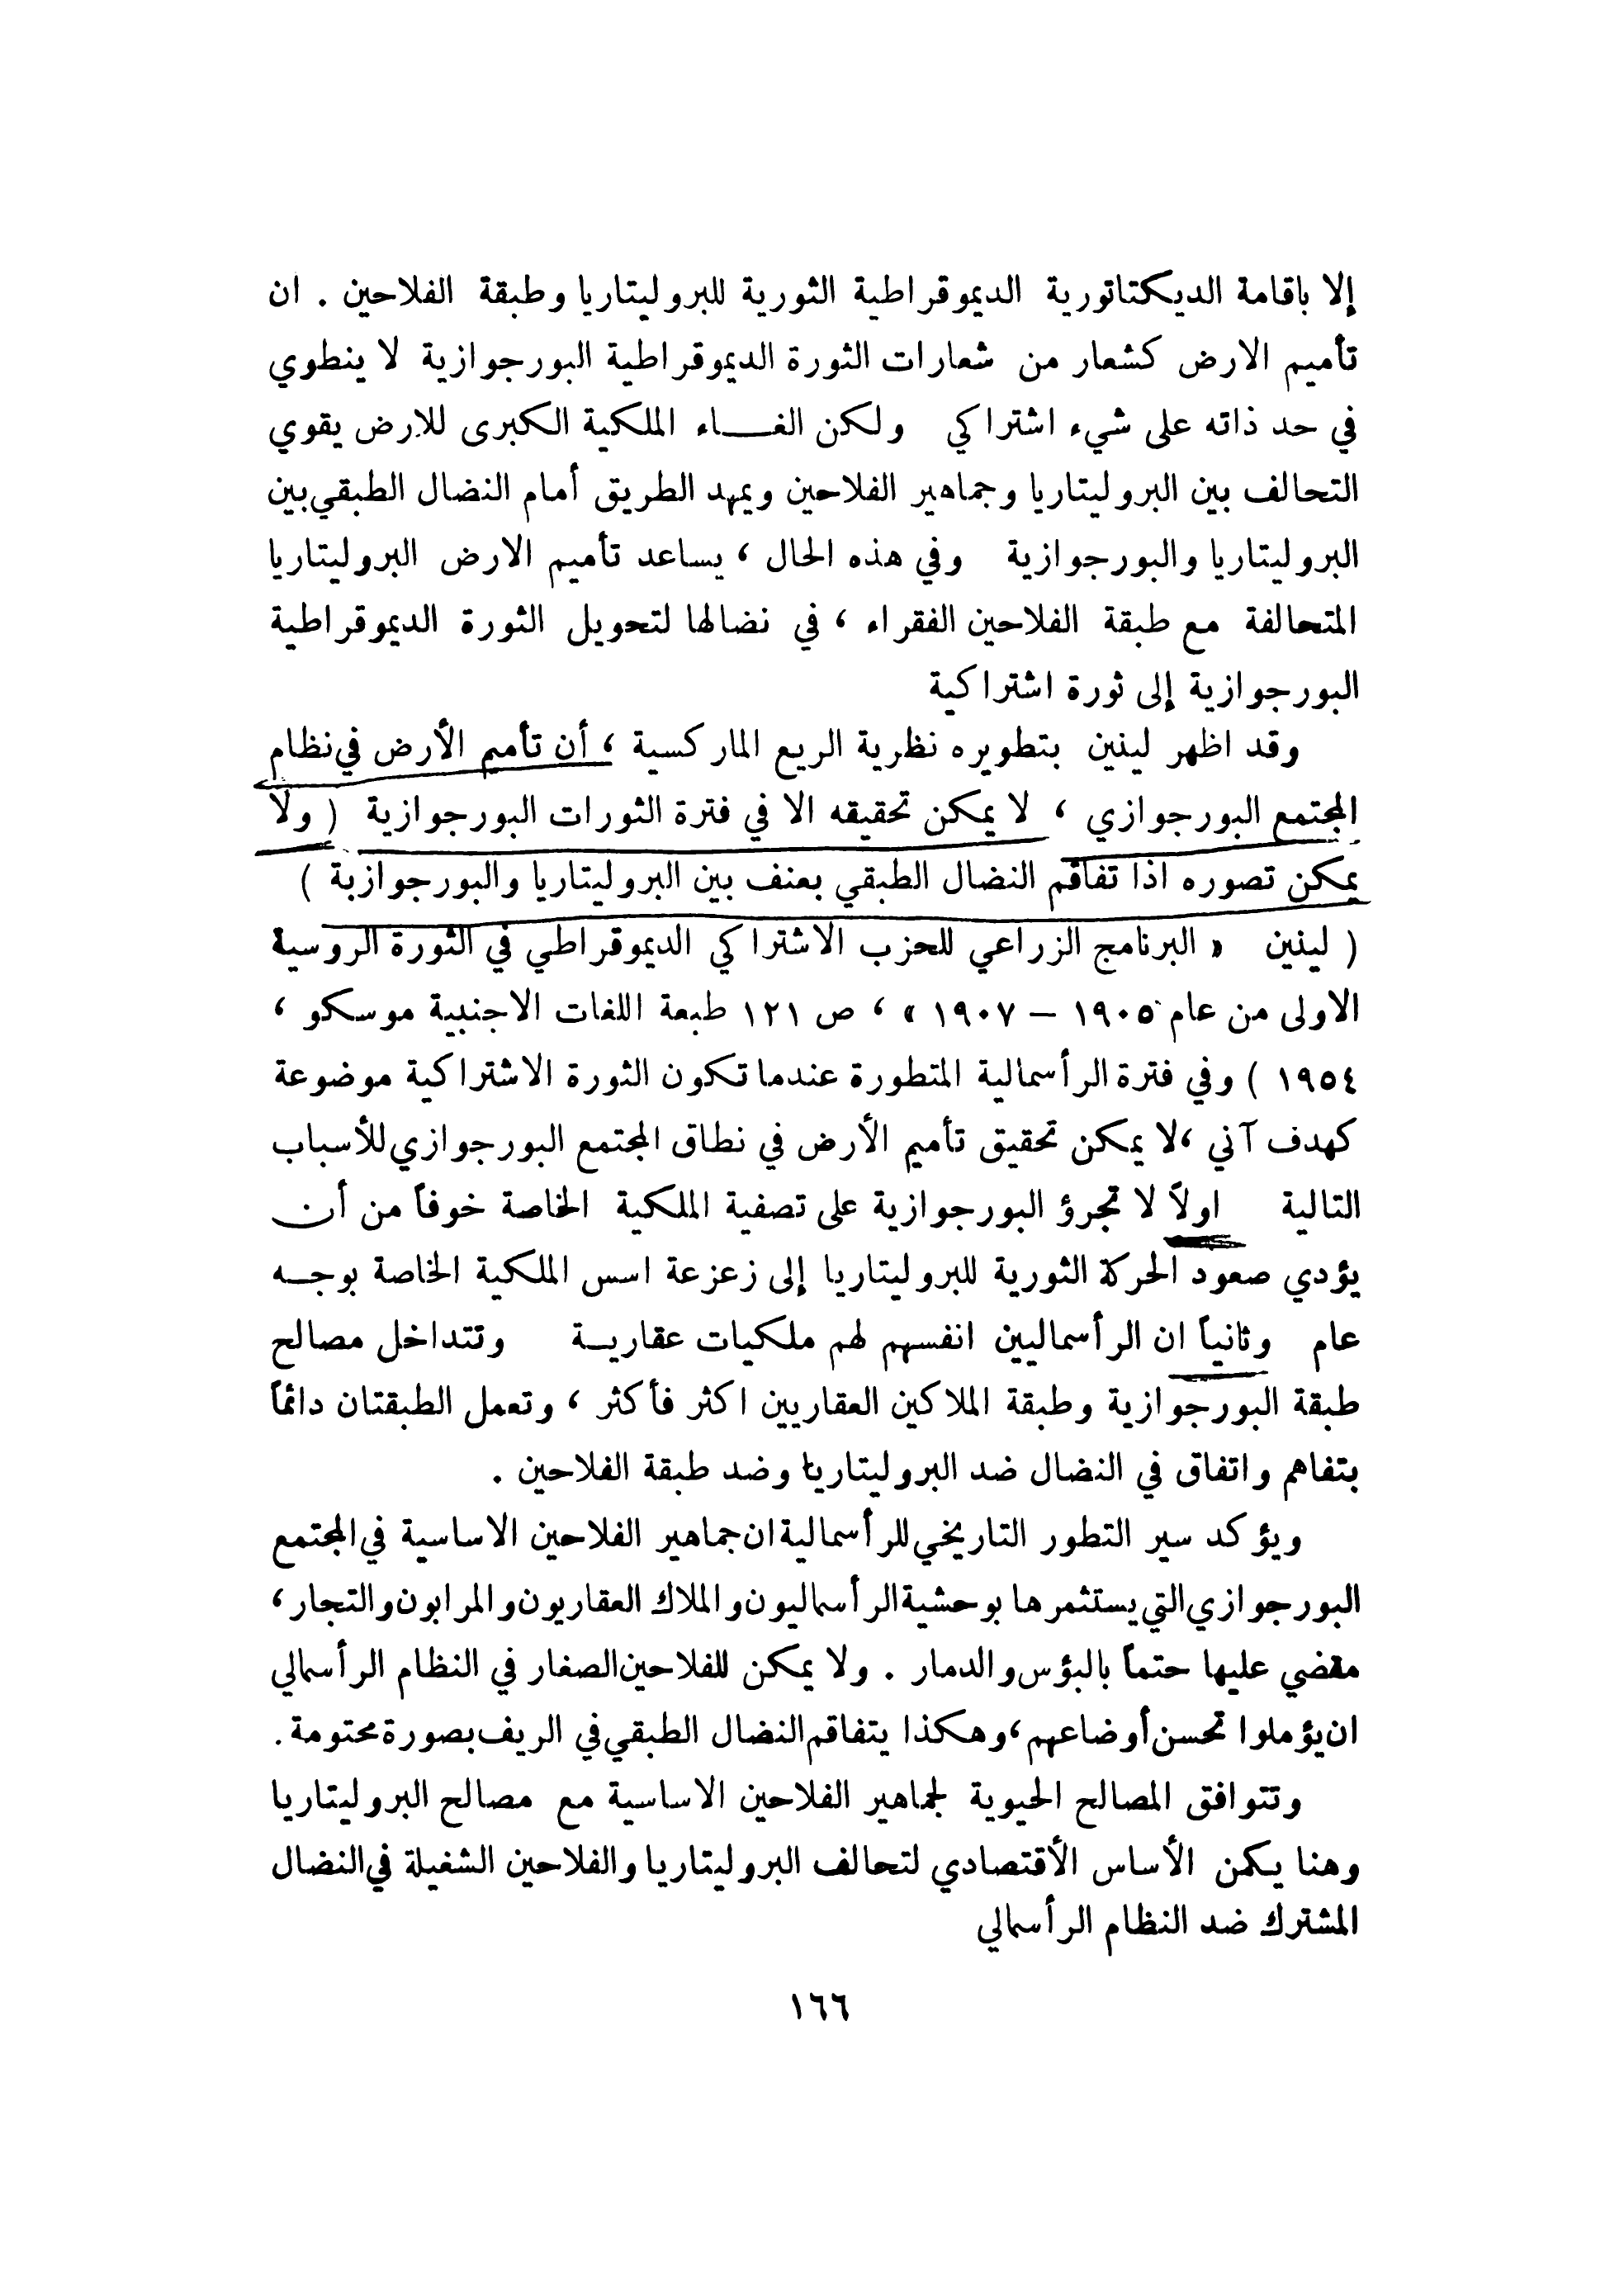 إلا باقامة الديكتاتورية الديموقراطية الثورية للبروليتاريا وطبقة الفلاحين . ان
تأميم الارض كشعار من شعارات الثورة الديموقراطية البورجوازية لا ينطوي
في حد ذاته على شيء اشتراكي ولكن الغــاء الملكية الكبرى للارض يقوي
التحالف بين البروليتاريا وجماهير الفلاحين ويمهد الطريق أمام النضال الطبقي بين
البروليتاريا والبورجوازية وفي هذه الحال ، يساعد تأميم الارض البروليتاريا
المتحالفة مع طبقة الفلاحين الفقراء ، في نضالها لتحويل الثورة الديموقراطية
البورجوازية إلى ثورة اشتراكية
وقد اظهر لينين بتطويره نظرية الريع الماركسية ، أن تأميم الأرض في نظام
المجتمع البورجوازي ، لا يمكن تحقيقه الا في فترة الثورات البورجوازية ( ولا
يمكن تصوره اذا تفاقم النضال الطبقي بعنف بين البروليتاريا والبورجوازية )
( لينين « البرنامج الزراعي للحزب الاشتراكي الديموقراطي في الثورة الروسية
الاولى من عام ١٩٠٥ – ١٩٠٧ » ، ص ١٢١ طبعة اللغات الاجنبية موسكو ،
١٩٥٤ ) وفي فترة الرأسمالية المتطورة عندما تكون الثورة الاشتراكية موضوعة
كهدف آني ، لا يمكن تحقيق تأميم الأرض في نطاق المجتمع البورجوازي للأسباب
التالية اولاً لا تجرؤ البورجوازية على تصفية الملكية الخاصة خوفاً من أن
يؤدي صعود الحركة الثورية للبروليتاريا إلى زعزعة اسس الملكية الخاصة بوجــه
عام وثانياً ان الرأسماليين انفسهم لهم ملكيات عقاريــة وتتداخل مصالح
طبقة البورجوازية وطبقة الملاكين العقاريين اكثر فأكثر ، وتعمل الطبقتان دائماً
بتفاهم واتفاق في النضال ضد البروليتاريا وضد طبقة الفلاحين .
ويؤكد سير التطور التاريخي للرأسمالية ان جماهير الفلاحين الاساسية في المجتمع
البورجوازي التي يستثمرها بوحشية الرأسماليون والملاك العقاريون والمرابون والتجار ،
مقضي عليها حتماً بالبؤس والدمار . ولا يمكن للفلاحين الصغار في النظام الرأسمالي
ان يؤملوا تحسن أوضاعهم ، وهكذا يتفاقم النضال الطبقي في الريف بصورة محتومة .
وتتوافق المصالح الحيوية لجماهير الفلاحين الاساسية مع مصالح البروليتاريا
وهنا يكمن الأساس الأقتصادي لتحالف البروليتاريا والفلاحين الشغيلة في النضال
المشترك ضد النظام الرأسمالي
١٦٦